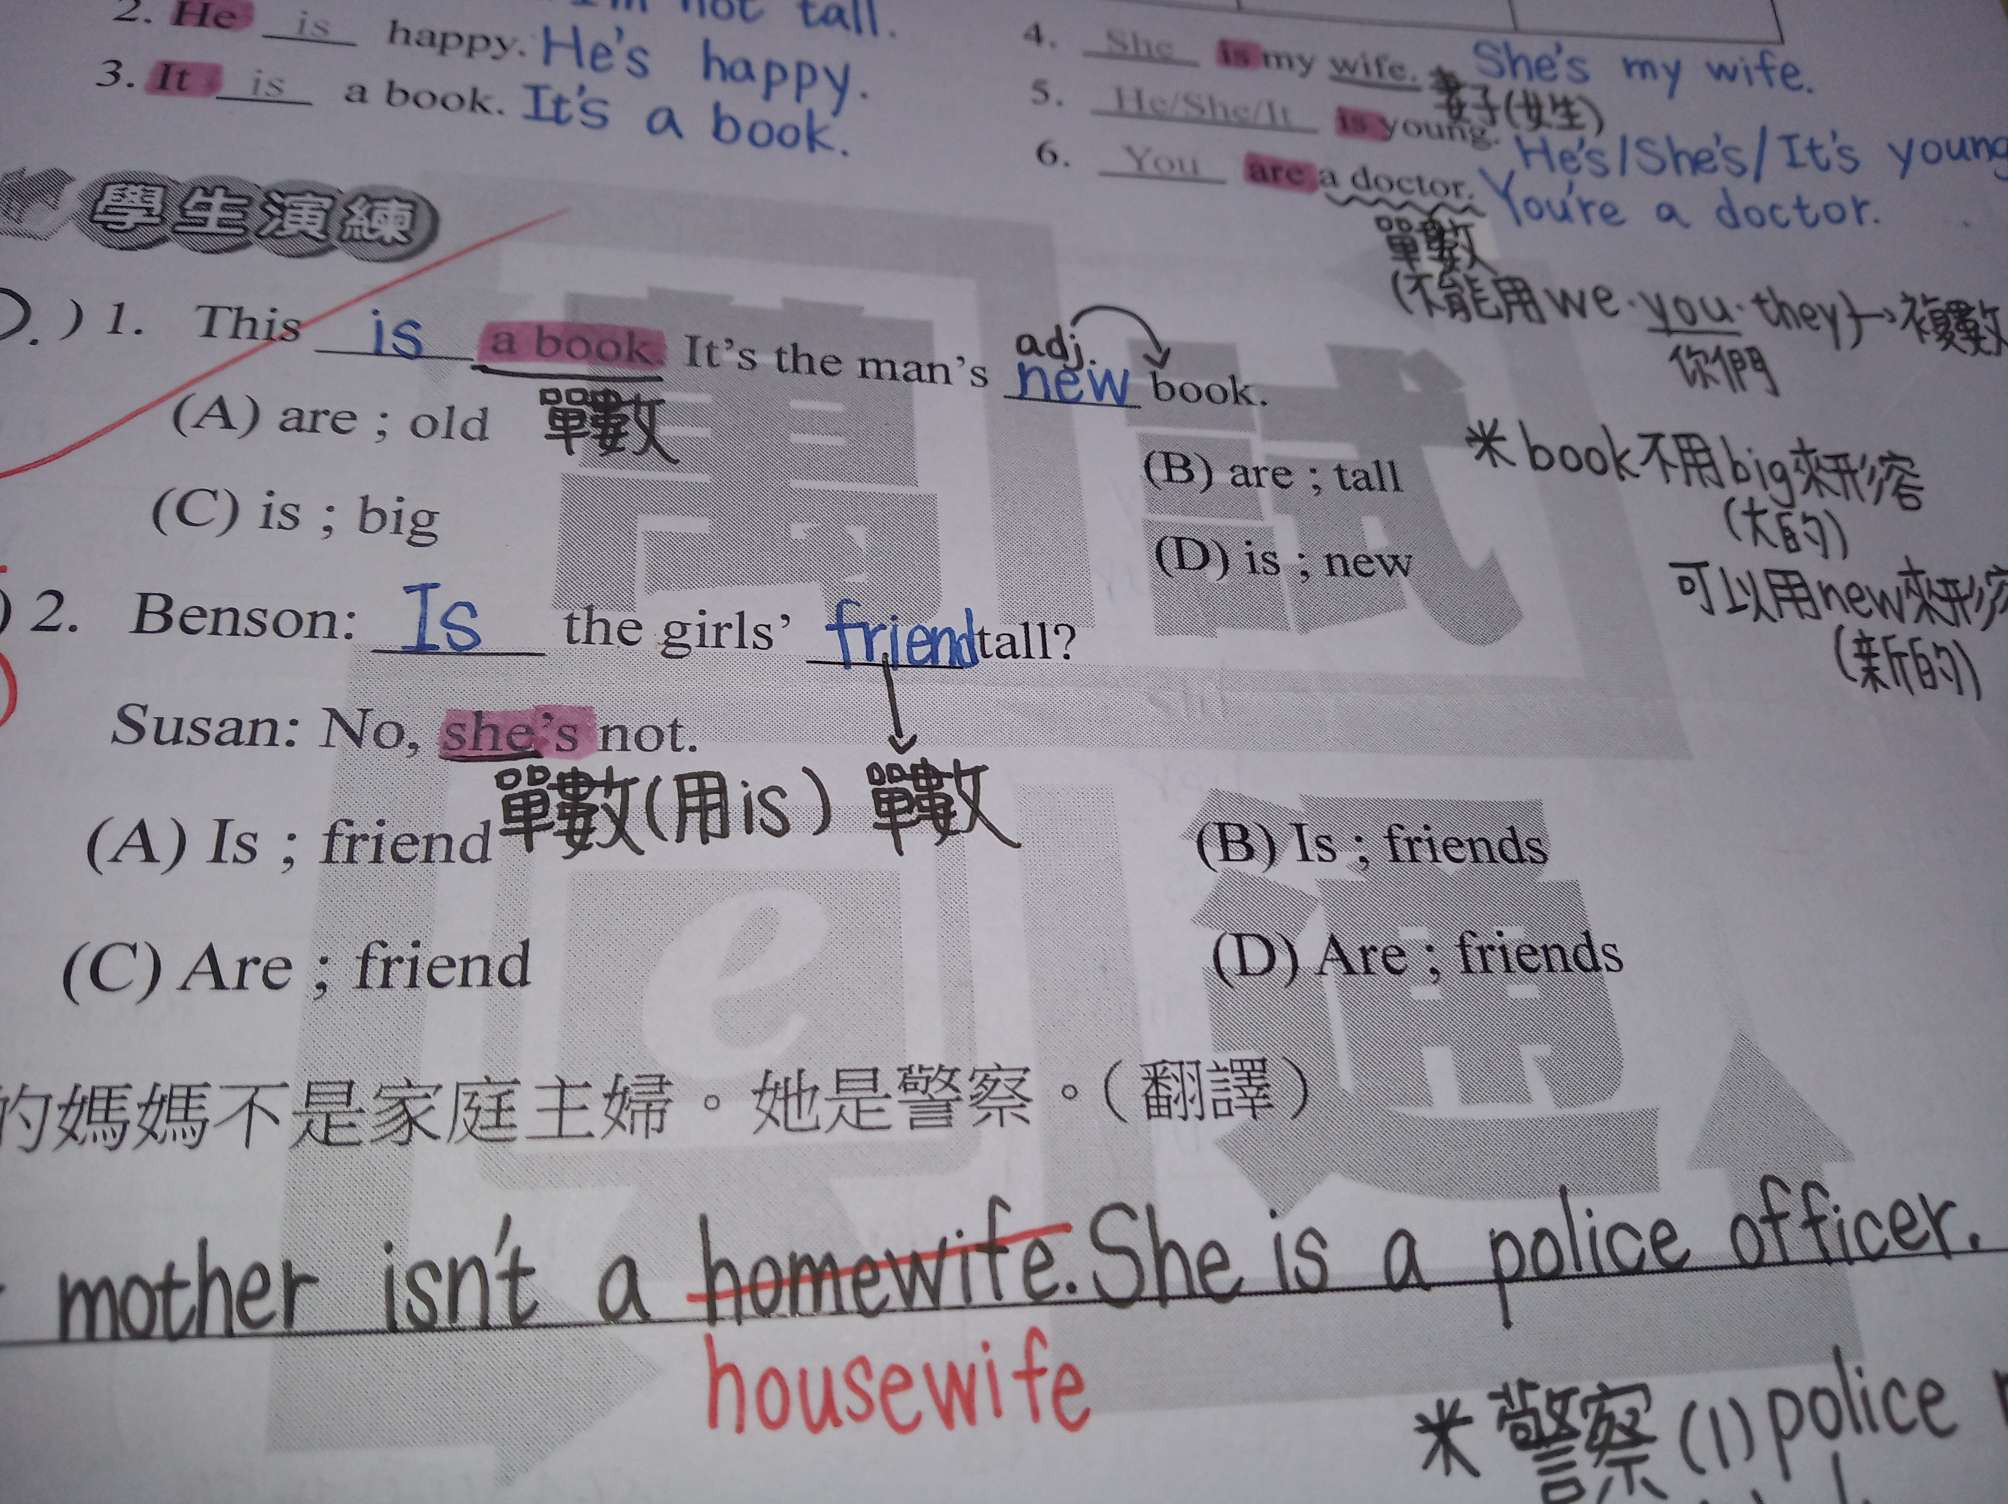 not tall.
2. He is happy. He's happy.
3. It is a book. It's a book.
4. She is my wife. She's my wife.
妻子(女生)
5. He/She/It is young. He's/She's/It's young
6. You are a doctor. You're a doctor.
單數
(不能用we.you.they)→複數
你們
學生演練
) 1. This is a book. It's the man's new book.
adj.
單數
(A) are ; old
(B) are ; tall
(C) is ; big
(D) is ; new
米book不用big來形容
(大的)
可以用new來形容
(新的)
) 2. Benson: Is the girls' friend tall?
Susan: No, she's not.
單數(用is) 單數
(A) Is ; friend
(B) Is ; friends
(C) Are ; friend
(D) Are ; friends
的媽媽不是家庭主婦。她是警察。(翻譯)
mother isn't a homewife. She is a police officer.
housewife
米警察(1)police
萬試e通